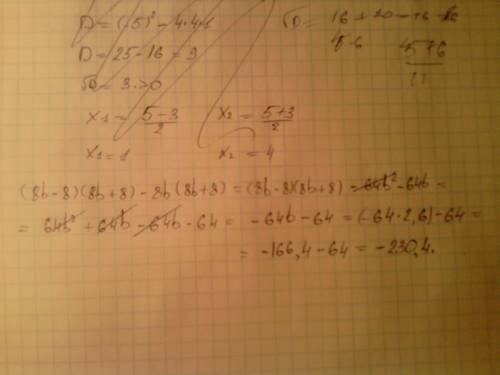 D = (-5)² - 4·4·1
D = 25 - 16 = 9
√D = 3 > 0
x1 = 5-3/2 x2 = 5+3/2
x1 = 1 x2 = 4
√D =
5+6
(8b-8)(8b+8) - 8b(8b+8) = (8b-8)(8b+8) - 64b² - 64b =
= 64b² + 64b - 64b - 64 = -64b - 64 = (-64·2,6) - 64 =
= -166,4 - 64 = -230,4.